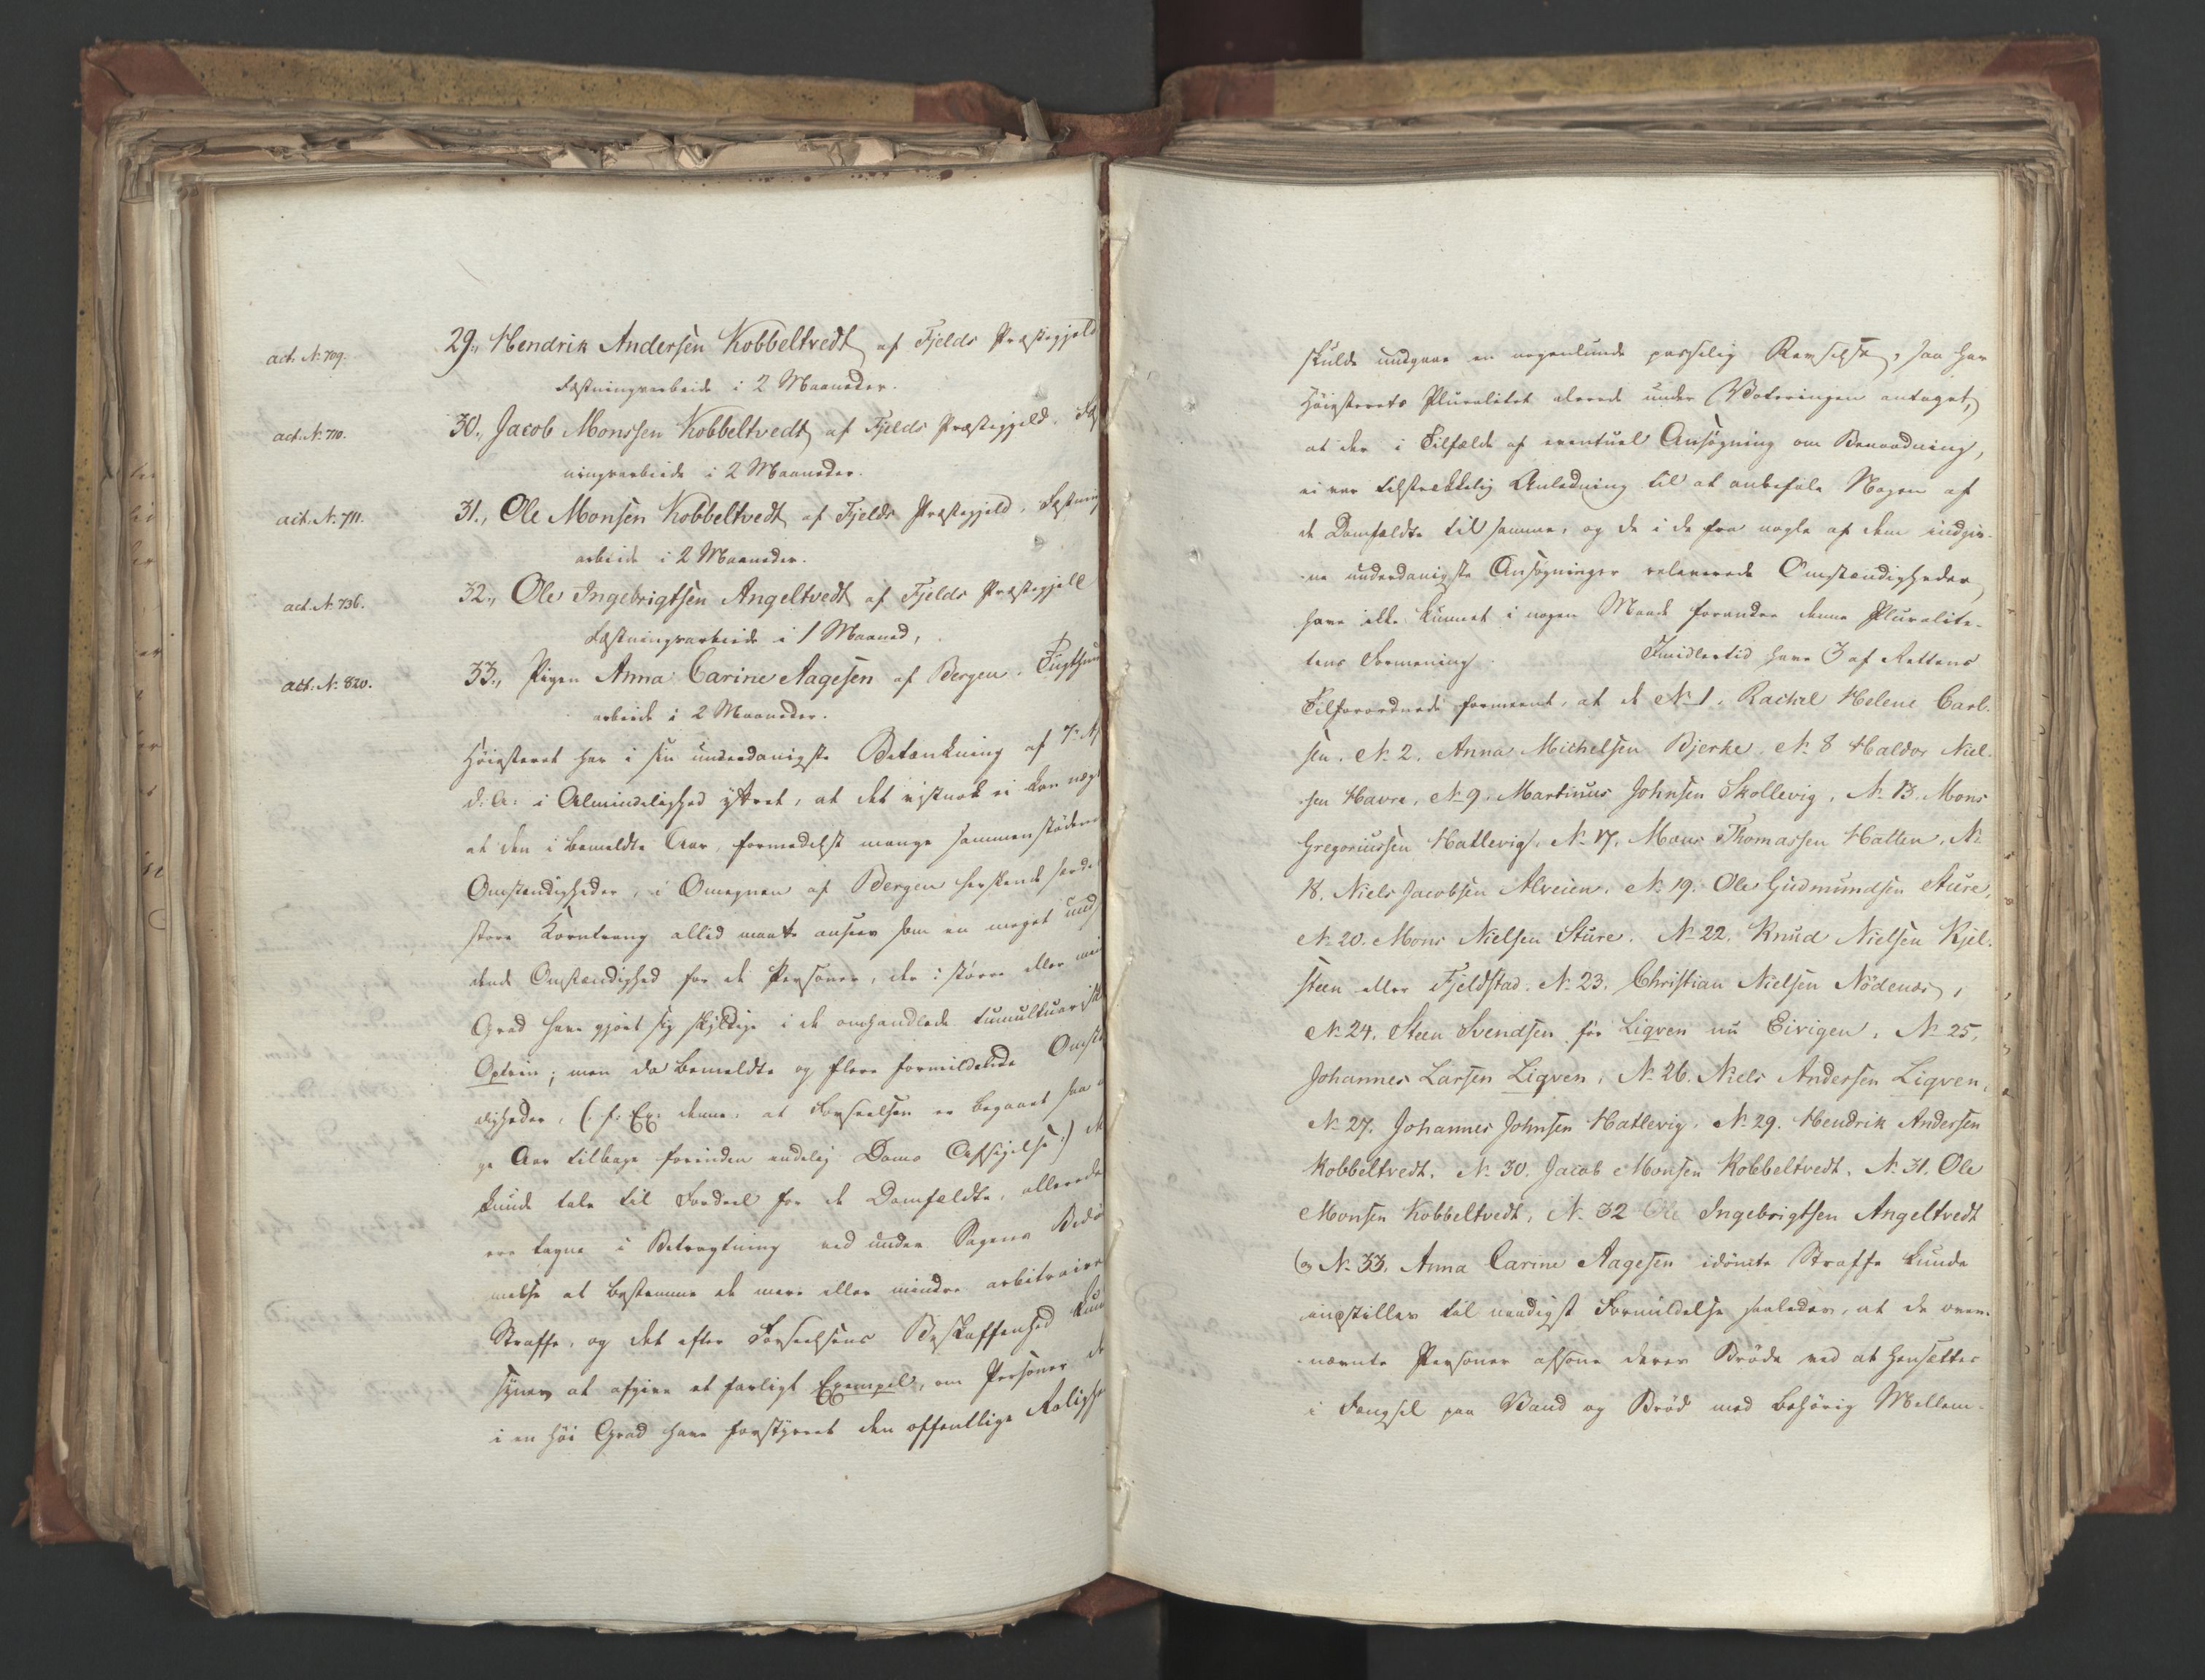 act. N. 709.
29., Hendrik Andersen Kobbeltvedt af Fjelds Præstegjeld
Fæstningsarbeide i 2 Maaneder.
act. N. 710.
30., Jacob Monssen Kobbeltvedt af Fjelds Præstegjeld. Fæst
ningsarbeide i 2 Maaneder.
act. N. 711.
31., Ole Monsen Kobbeltvedt af Fjelds Præstegjeld, Fæstnings
arbeide i 2 Maaneder.
act. N. 736.
32., Ole Ingebrigtsen Angeltvedt af Fjelds Præstegjeld
Fæstningsarbeide i 1 Maaned,
act. N. 820.
33., Pigen Anna Carine Aagesen af Bergen. Tugthuus
arbeide i 2 Maaneder.
Høiesteret har i sin underdanigste Betænkning af 7.
d: A: i Almindelighed yttret, at det vistnok ei kan nægt
at den i bemeldte Aar, formedelst mange sammenstødende
Omstændigheder, i Omegnen af Bergen herskende særde
store Korntrang altid maatte ansees som en meget und
dende Omstændighed for de Personer, der i større eller min
Grad have gjort sig skyldige i de omhandlede tumultuariske
Optrin; men da bemeldte og flere formildende Omstæn
digheder, (: f. Ex: denne, at Forseelsen er begaaet saa
ge Aar tilbage forinden endelig Doms Afsigelse :)
kunde tale til Fordeel for de Domfældte, allerede
ere tagne i Betragtning ved under Sagens Bedøm
melse at bestemme de mere eller mindre arbitraire
Straffe, og det efter Forseelsens Beskaffenhed kun
synes at afgive et farligt Exempel, om Personer der
i en høi Grad have forstyrret den offentlige Rolighed
skulde undgaae en nogenlunde passelig Revselse, saa har
Høiesterets Pluralitet allerede under Voteringen antaget,
at der i Tilfælde af eventuel Ansøgning om Benaadning,
ei var tilstrækkelig Anledning til at anbefale Nogen af
de Domfældte til samme, og de i de fra nogle af dem indgiv-
ne underdanigste Ansøgninger releverede Omstændigheder
have ikke kunnet i nogen Maade forandre denne Plualite-
tens Formening. Imidlertid have 3 af Rettens
Tilforordnede formeent, at de No 1, Rachel Helene Carl-
sen. No 2. Anna Michelsen Bjerke, No 8 Haldor Niel-
sen Havre, No 9. Martinus Johnsen Skollevig, No 13. Mons
Gregoriussen Hatlevig, No 17. Mons Thomassen Hatten, No
18. Niels Jacobsen Alveien, No 19. Ole Gudmundsen Sture,
No 20. Mons Nielsen Sture. No 22. Knud Nielsen Kjel-
steen eller Fjeldstad. No 23. Christian Nielsen Nödenæs,
No 24. Steen Svendsen før Liqven nu Eivigen, No 25,
Johannes Larsen Liqven, No 26. Niels Andersen Liqven,
No 27. Johannes Johnsen Hatlevig, No 29. Hendrik Andersen
Kobbeltvedt, No 30. Jacob Monsen Kobbeltvedt, No 31. Ole
Monsen Kobbeltvedt, No 32 Ole Ingebrigtsen Angeltvedt
og No 33. Anna Carine Aagesen idømte Straffe kunde
indstilles til naadigst Formildelse saaledes, at de oven-
nævnte Personer afsone deres Brøde ved at hensættes
i Fængsel paa Vand og Brød med behørig Mellem-